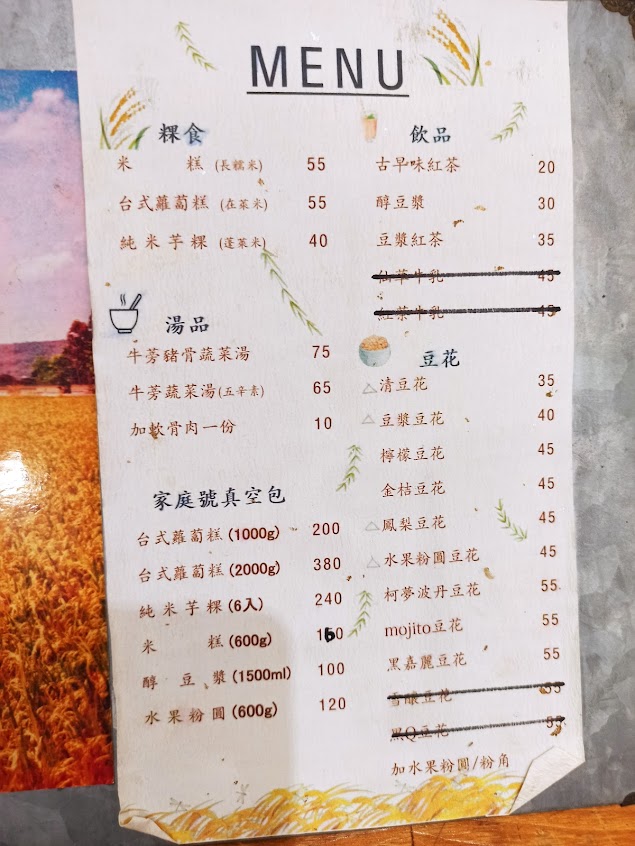 MENU
粿食
米 糕 (長糯米) 55
台式蘿蔔糕 (在萊米) 55
純米芋粿 (蓬萊米) 40
湯品
牛蒡豬骨蔬菜湯 75
牛蒡蔬菜湯(五辛素) 65
加軟骨肉一份 10
家庭號真空包
台式蘿蔔糕 (1000g) 200
台式蘿蔔糕 (2000g) 380
純米芋粿 (6入) 240
米 糕 (600g) 160
醇豆漿 (1500ml) 100
水果粉圓 (600g) 120
飲品
古早味紅茶 20
醇豆漿 30
豆漿紅茶 35
仙草牛乳 45
紅茶牛乳 45
豆花
△清豆花 35
△豆漿豆花 40
檸檬豆花 45
金桔豆花 45
△鳳梨豆花 45
△水果粉圓豆花 45
柯夢波丹豆花 55
mojito豆花 55
黑嘉麗豆花 55
雪釀豆花 55
黑Q豆花 55
加水果粉圓/粉角